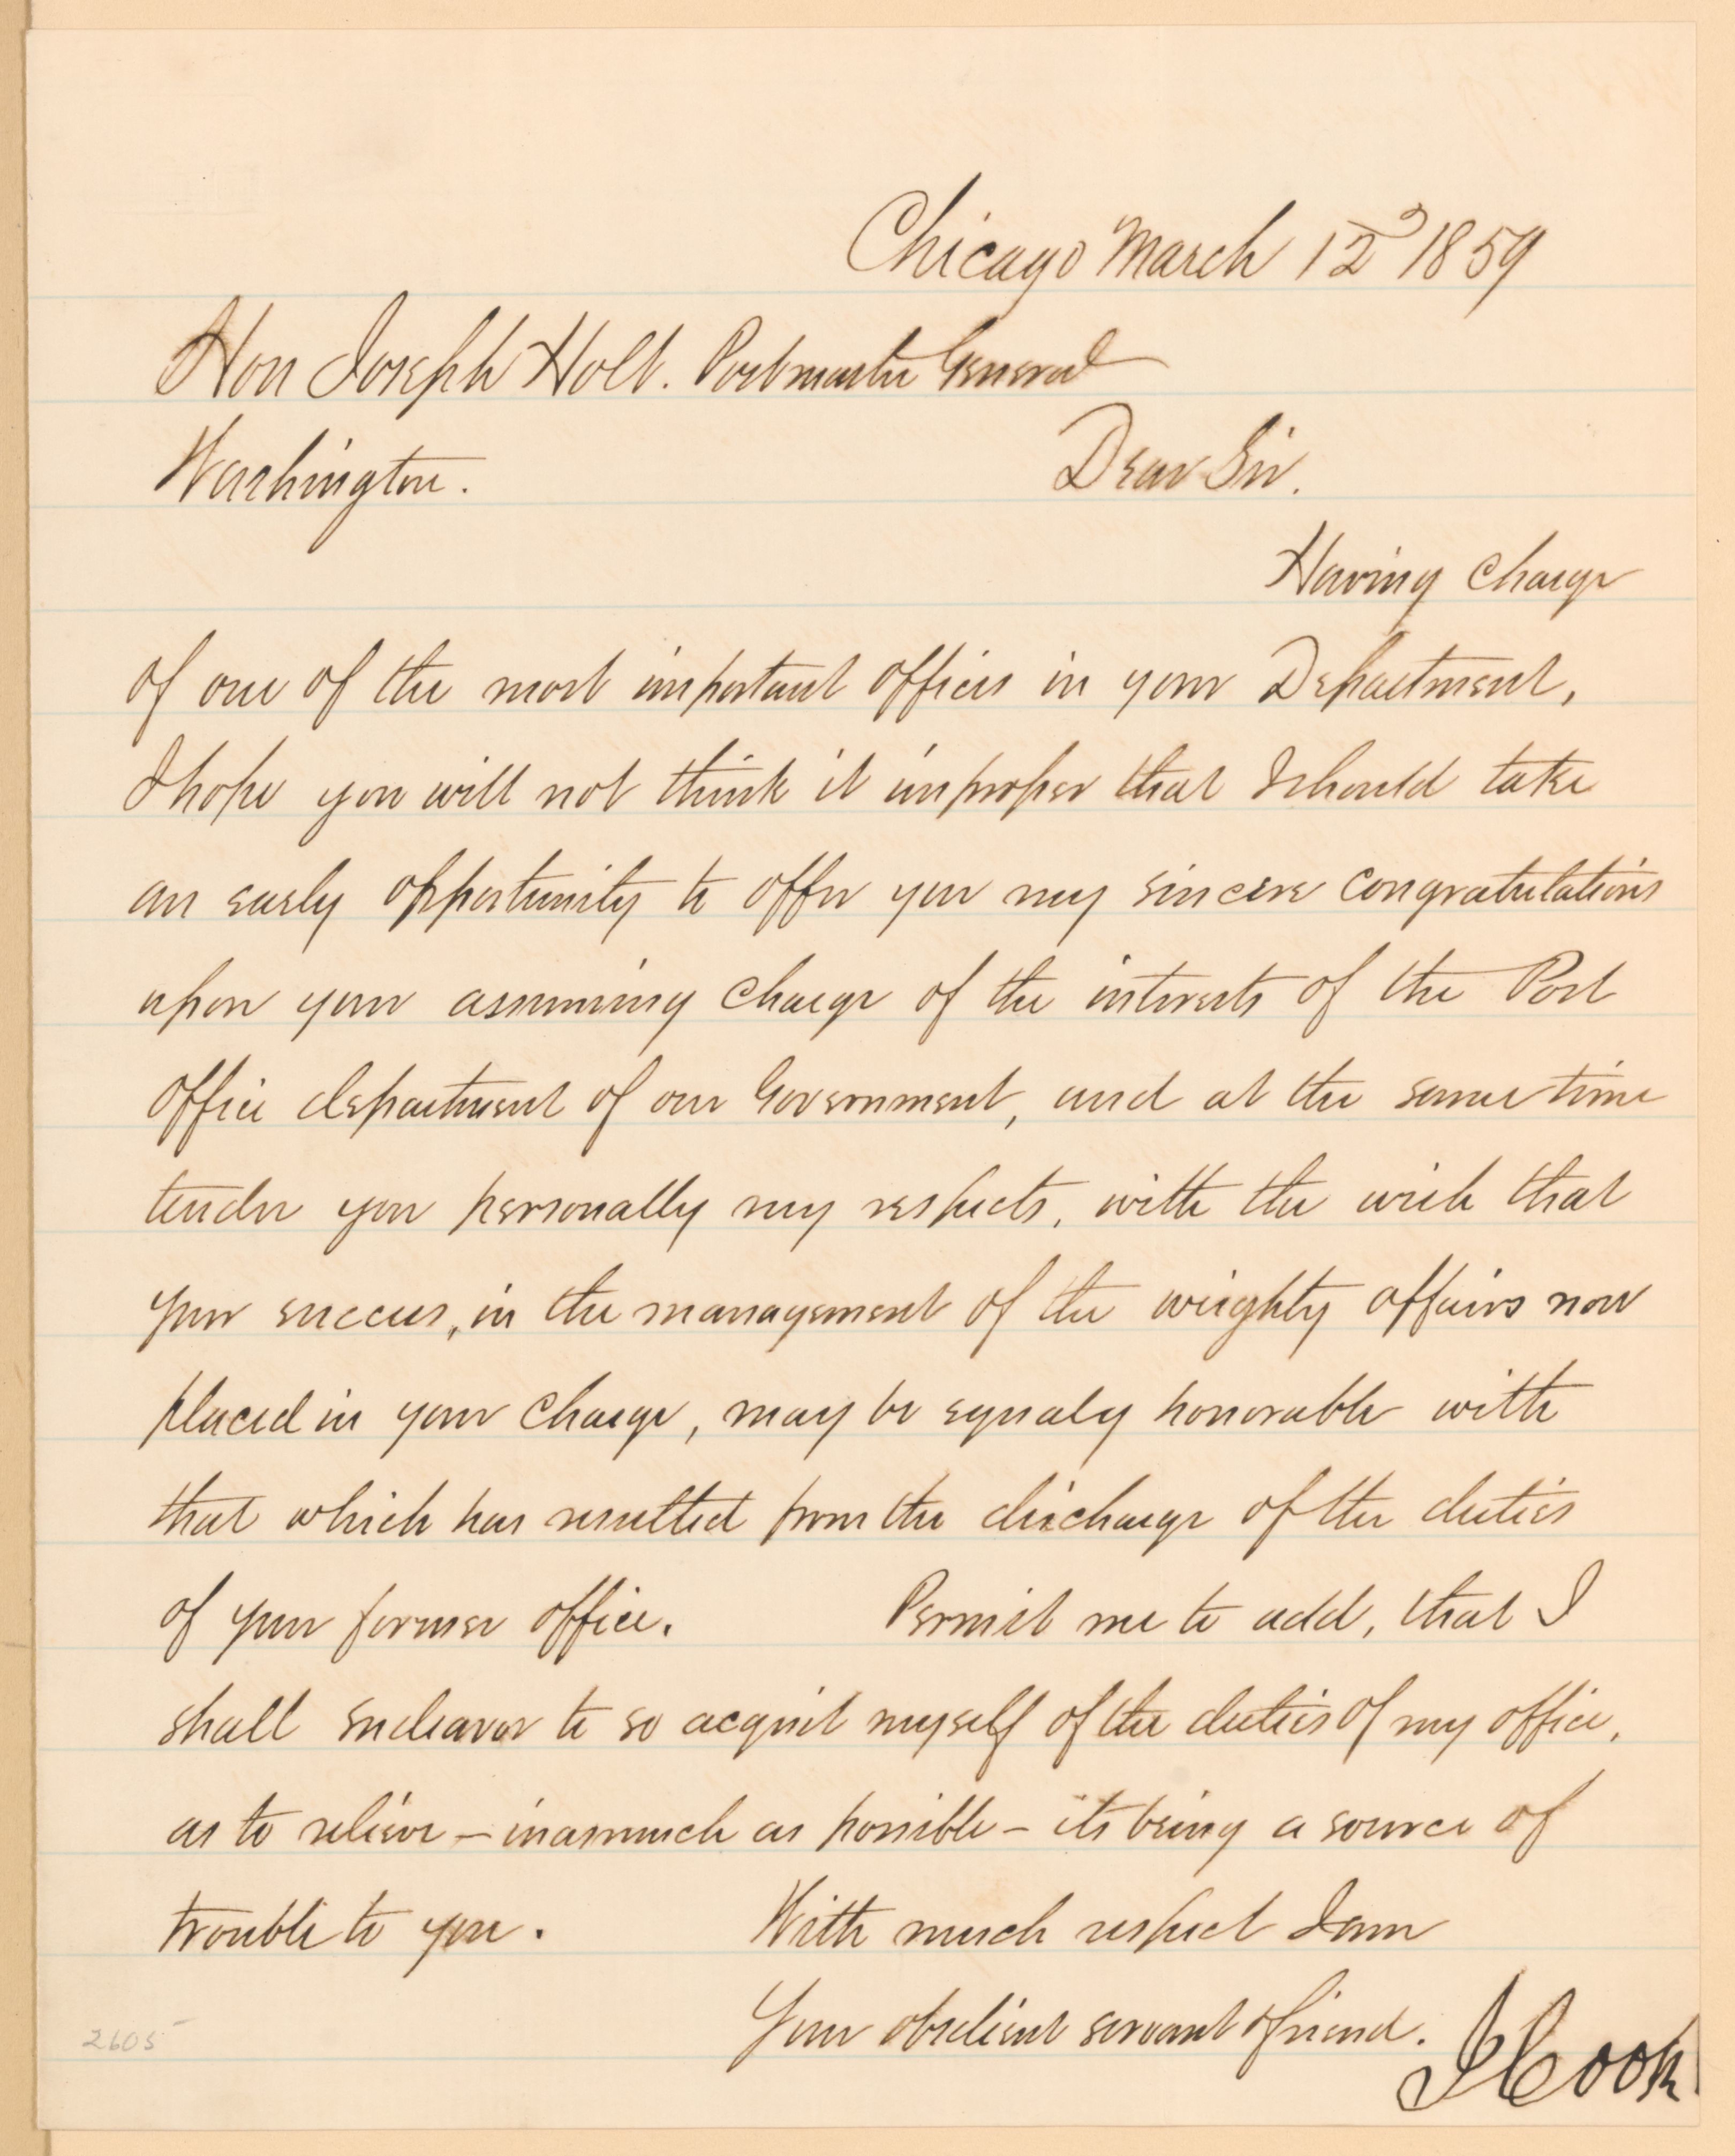 Chicago March 12 1859
Hon Joseph Holt. Postmaster General
Washington. Dear Sir.
Having charge
of one of the most important offices in your Department,
I hope you will not think it improper that I should take
an early opportunity to offer you my sincere congratulations
upon your assuming charge of the interests of the Post
Office department of our Government, and at the same time
tender you personally my respects, with the wish that
your success, in the management of the weighty affairs now
placed in your charge, may be equaly honorable with
that which has resulted from the discharge of the duties
of your former office. Permit me to add, that I
shall endeavor to so acquit myself of the duties of my office,
as to relieve – inasmuch as possible – its being a source of
trouble to you. With much respect I am
Your obedient servant & friend.
I Cook
2605